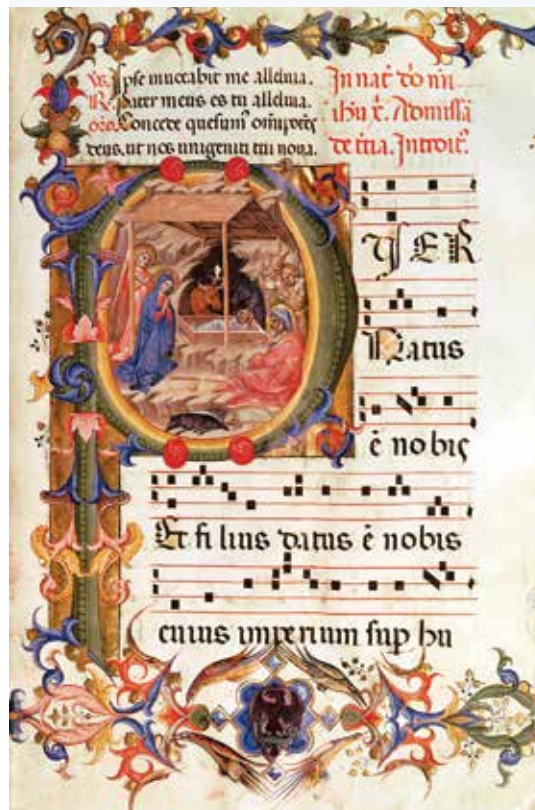 ℣. Ipse invocabit me alleluia.
℟. Pater meus es tu alleluia.
oro. Concede quesum⁹ omīpotēs
deus. ut nos unigeniti tui nova.
In nat̄ dn̄i n̄ri
ihū x̄. Ad missā
de t̄ia. Introit⁹.
P
VER
Natus
ē nobis
Et fi lius datus ē nobis
cuius imperium sup hu